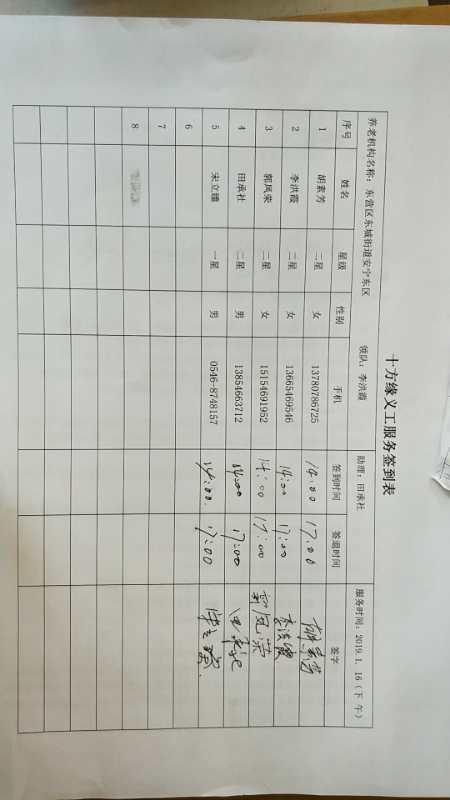 十方缘义工服务签到表
养老机构名称：东营区东城街道安宁东区 领队：李洪霞 助理：田承社 服务时间：2019.1.16（下午）
序号 姓名 星级 性别 手机 签到时间 签退时间 签字
1 胡素芳 二星 女 13780786725 14:00 17:00 胡素芳
2 李洪霞 二星 女 13665469546 14:00 17:00 李洪霞
3 郭凤荣 二星 女 15154691952 14:00 17:00 郭凤荣
4 田承社 二星 男 13854663712 14:00 17:00 田承社
5 宋立 一星 男 0546-8748157 14:00 17:00
6
7
8